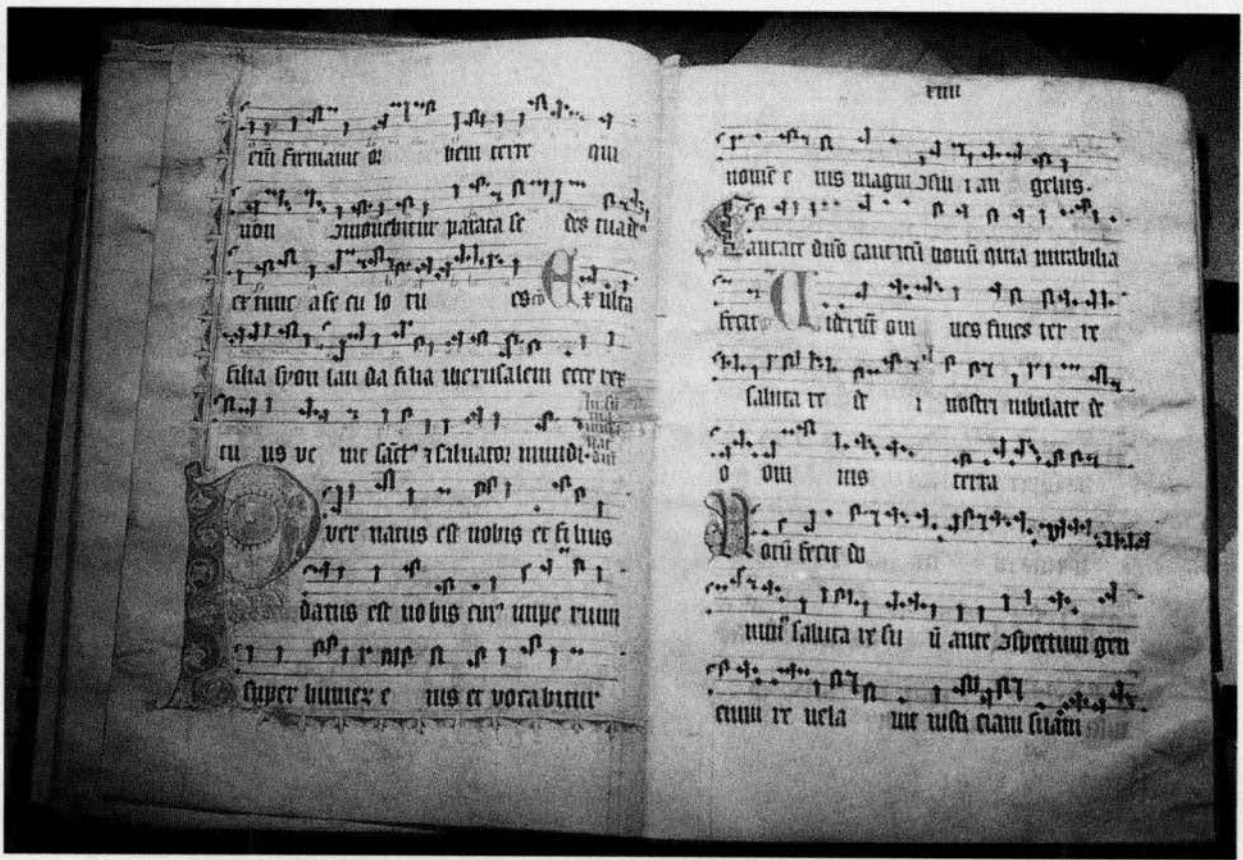 eni firmauit or bem terre qui
non ɔmouebitur parata se des tua dꝰ
ex tunc a se cu lo tu es Ex ulta
filia syon lau da filia iherusalem ecce rex
tu us ve nit sāctꝰ ⁊ saluator mundi.
In
Puer natus est nobis et fi lius
datus est no bis cuiꝰ impe rium
super humeꝝ e ius et vocabitur
xiiii
nomē e ius magni ɔsilii an gelus.
Cantate dn̄o canticū nouū quia mirabilia
fecit Uiderūt om nes fines ter re
saluta re de i nostri iubilate de
o om nis terra
Notū fecit do
minꝰ saluta re su ū ante ɔspectum gen
cium re uela uit iusti ciam suam